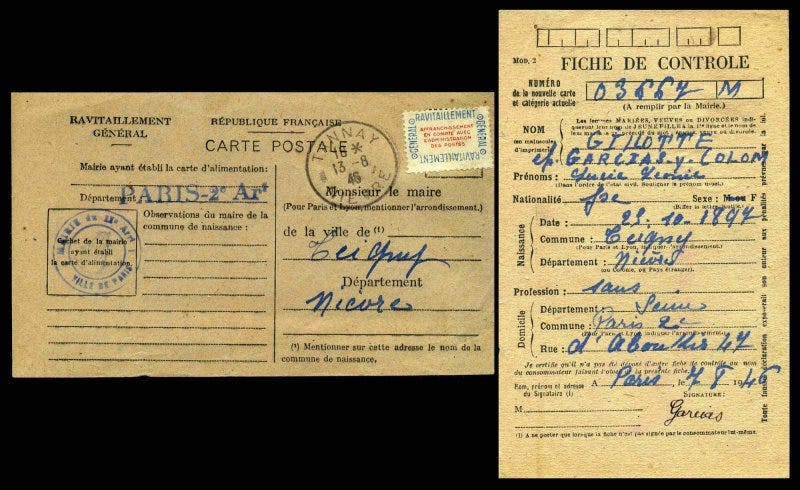 RAVITAILLEMENT
GÉNÉRAL
RÉPUBLIQUE FRANÇAISE
CARTE POSTALE
TANNAY
16 *
13 - 8
46
RAVITAILLEMENT
GÉNÉRAL
GÉNÉRAL
RAVITAILLEMENT
AFFRANCHISSEMENT
EN COMPTE AVEC
L'ADMINISTRATION
DES POSTES
Mairie ayant établi la carte d'alimentation:
Département
PARIS-2e Art
Observations du maire de la
commune de naissance :
MAIRIE du IIe Arrt
VILLE DE PARIS
Cachet de la mairie
ayant établi
la carte d'alimentation
Monsieur le maire
(Pour Paris et Lyon, mentionner l'arrondissement.)
de la ville de (1)
Teigny
Département
Nièvre
(1) Mentionner sur cette adresse le nom de la
commune de naissance.
MOD. 2
FICHE DE CONTROLE
NUMÉRO
de la nouvelle carte
et catégorie actuelle
03667 M
(A remplir par la Mairie.)
Les femmes MARIÉES, VEUVES ou DIVORCÉES indi-
queront leur nom de JEUNE FILLE à la 1re ligne et le nom de
NOM
en majuscules
d'imprimerie
GILOTTE
ép. GARCIAS y COLOM
Prénoms : Lucie Léonie
(Dans l'ordre de l'état civil. Souligner le prénom usuel.)
Nationalité fse Sexe : M ou F
(Biffer la lettre inutile.)
Naissance
Date : 22.10.1897
Commune : Teigny
(Pour Paris et Lyon, indiquer l'arrondissement.)
Département : Nièvre
(ou Colonie, ou Pays étranger).
Profession : sans
Domicile
Département : Seine
Commune : Paris 2e
(Pour Paris et Lyon indiquer l'arrondissement.)
Rue : d'Aboukir 47
Je certifie qu'il n'a pas été déposé d'autre fiche de contrôle au nom
du consommateur faisant l'objet de la présente fiche.
Nom, prénom et adresse
du Signataire (1)
A Paris, le 7 8 1946
SIGNATURE :
M
Garcias
(1) A ne porter que lorsque la fiche n'est pas signée par le consommateur lui-même.
Toute fausse déclaration expose son auteur aux pénalités prévues par la loi.